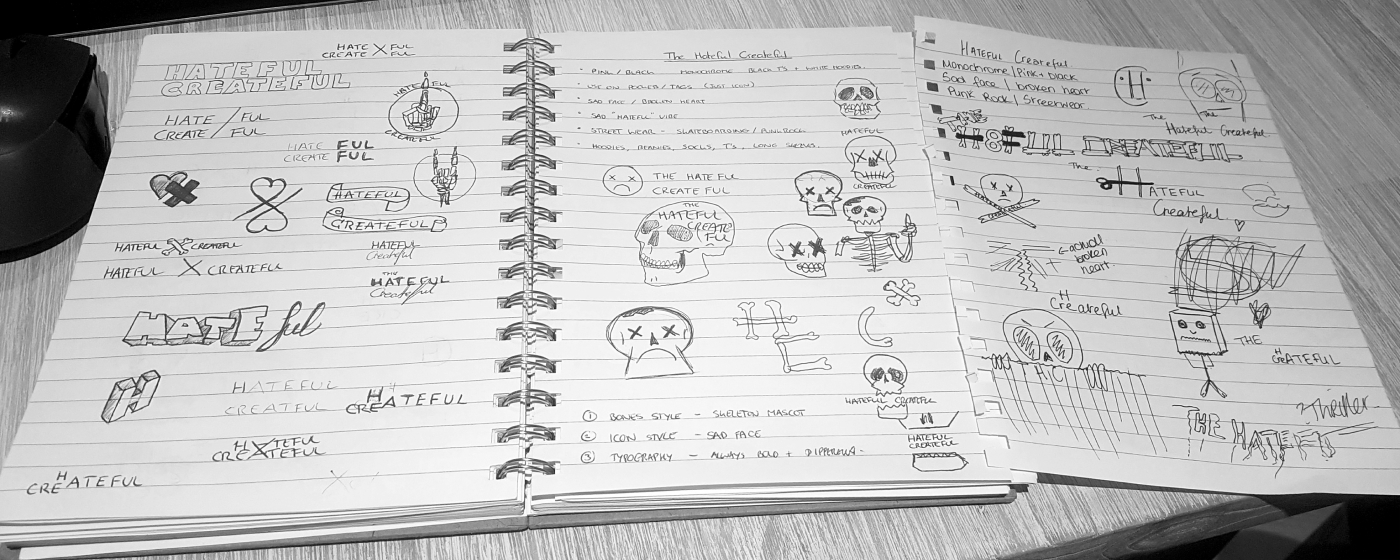 HATE X FUL
CREATE FUL
HATEFUL
CREATEFUL
HATE / FUL
CREATE / FUL
HATE FUL
CREATE FUL
HATEFUL
CREATEFUL
HATEFUL
CREATEFUL
HATEFUL CREATEFUL
HATEFUL X CREATEFUL
HATEFUL
Createful
THE
HATEFUL
Createful
HATEful
H
HATEFUL
CREATFUL
H
CREATEFUL
HATEFUL
CREATEFUL
H
CREATEFUL
The Hateful Createful
• PINK / BLACK MONOCHROME BLACK T'S + WHITE HOODIES.
(JUST ICON)
• SAD FACE / BROKEN HEART
• SAD "HATEFUL" VIBE
• STREET WEAR - SKATEBOARDING / PUNK ROCK
• HOODIES, BEANIES, SOCKS, T'S, LONG SLEEVES.
THE HATEFUL
CREATEFUL
HATEFUL
CREATEFUL
THE
HATEFUL
CREATE
FUL
H
C
HATEFUL CREATEFUL
HATEFUL
CREATEFUL
① BONES STYLE - SKELETON MASCOT
② ICON STYLE - SAD FACE
③ TYPOGRAPHY - ALWAYS BOLD +
HATEFUL CREATEFUL
Monochrome / Pink + black
Sad face / broken heart
Punk Rock / Streetwear.
H
The
Hateful Createful
The
HATEFUL
Createful
actual
broken
heart.
H
Createful
HC
THE
H
CREATEFUL
Thriller
THE HATEFUL